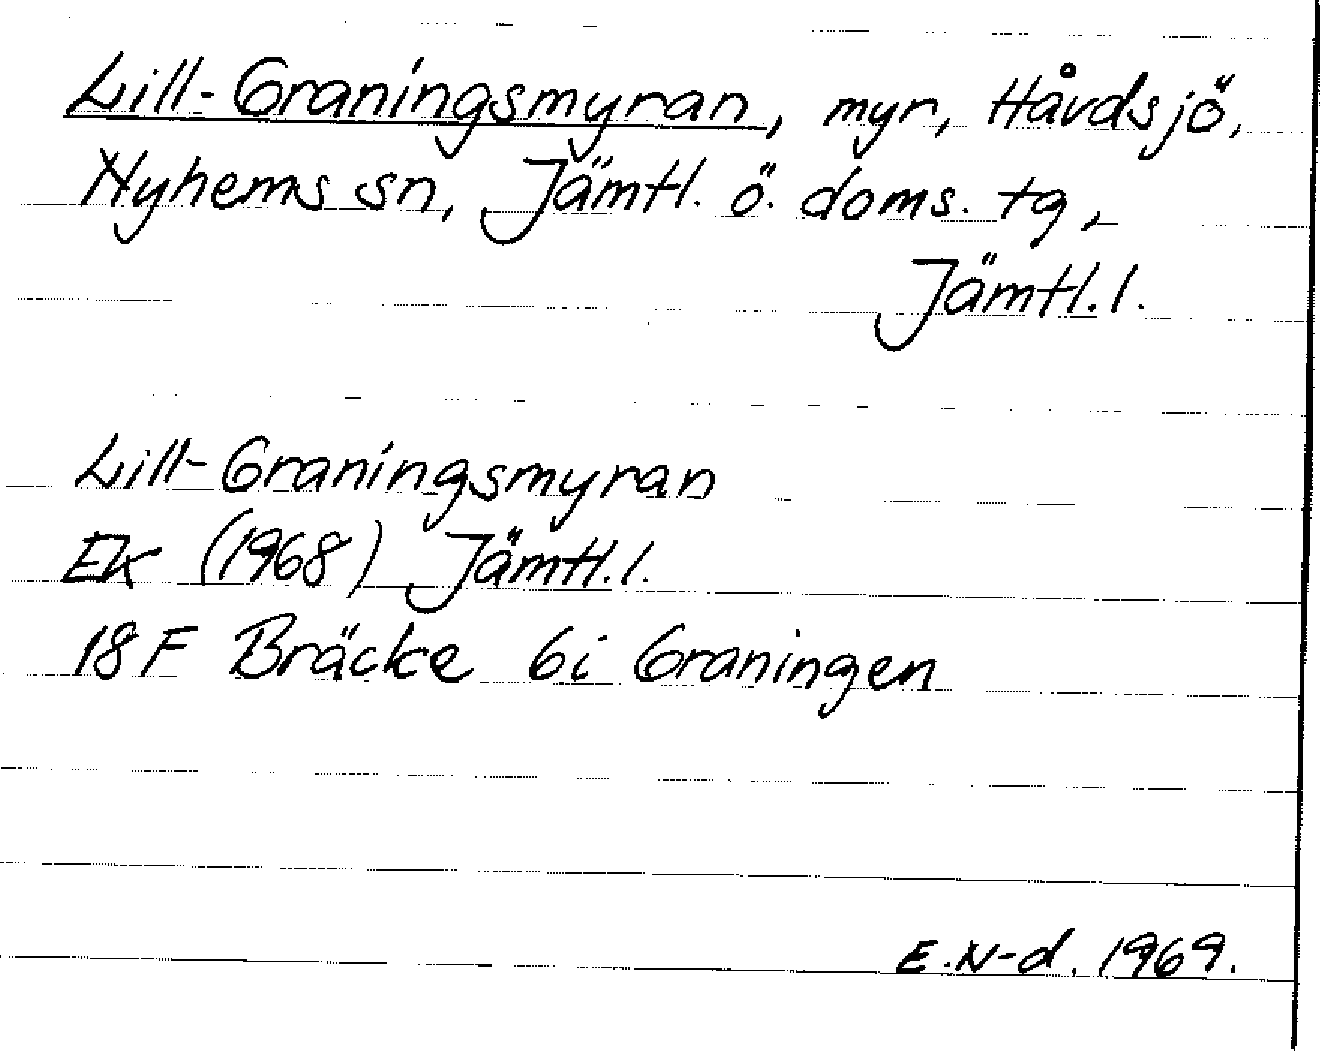 Lill-Graningsmyran, myr, Håvdsjö,
Nyhems sn, Jämtl. ö. doms. tg,
Jämtl. l.
Lill-Graningsmyran
EK (1968) Jämtl. l.
18 F Bräcke 6i Graningen
E. N-d. 1969.